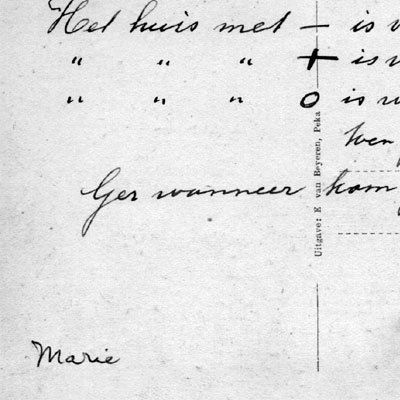 Het huis met — is
" " " + is
" " " o is
Ger wanneer kom
Marie
Uitgave: E van Beyeren, Peka